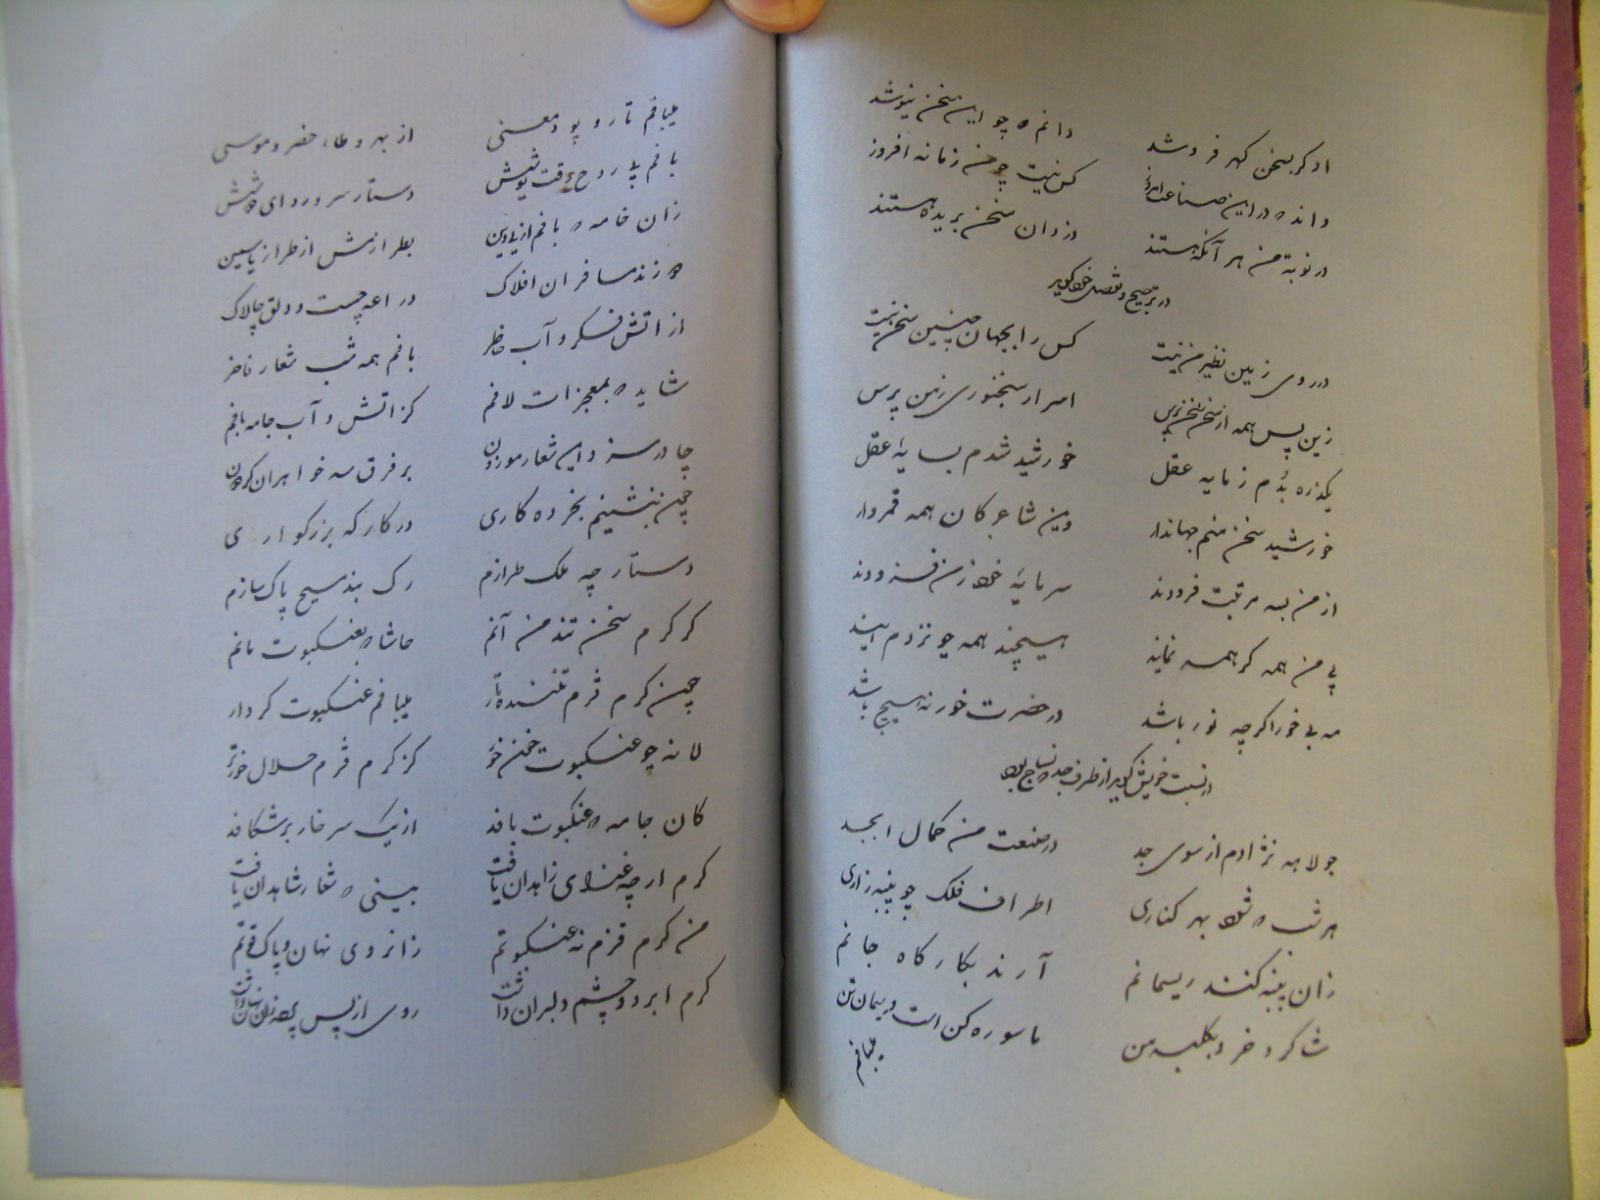 او کر سخن کهر فروشد دانم که چو این سخن نیوشد
داند که در این صناعت امروز کس نیست چو من زمانه افروز
در نوبة من هر آنکه هستند دزدان سخن بریده دستند
در ترجیح و تفضل خود کوید
در روی زمین نظیر من نیست کس را بجهان چنین سخن نیست
زین پس همه از سخن سخن پرس اسرار سخنوری ز من پرس
یکذره بدم ز مایه عقل خورشید شدم بسایۀ عقل
خورشید سخن منم جهاندار وین شاعرکان همه قمروار
از من بسه مرتبت فرودند سرمایۀ خود ز من فزودند
بی من همه کر همه نمایند هیچند همه چو نزدم آیند
مه بی خور اکرچه نور باشد در حضرت خور نه هیچ باشد
در نسبت خویش کوید از طرف جد که نساج بود
جولاهه نژادم از سوی جد در صنعت من کمال ابجد
هر شب که شود بهر کناری اطراف فلک چو پنبه زاری
زان پنبه کنند ریسمانم آرند بکارکاه جانم
شاکرد خرد بکلبه من ماسوره کن است و ریسمان تن
میبافم
میبافم تار و پود معنی از بهر وطاء خضر و موسی
بافم پی روح وقت پوشش دستار سر و ردای دوشش
زان خامه که بافم از پی دین بطرازمش از طراز یاسین
که زند مسافران افلاک دراعه چست و دلق چالاک
از اتش فکر و آب خاطر بافم همه شب شعار فاخر
شاید که بمعجزات لافم کز اتش و آب جامه بافم
چادر سزد این شعار موزون بر فرق سه خواهران کردون
چون بنشینم بخرده کاری در کارکه بزرکواری
دستارچه ملک طرازم رک بند مسیح پاک سازم
کر کرم سخن تند من آنم حاشا که بعنکبوت مانم
چون کرم قزم تننده تار میبافم عنکبوت کردار
لا نه چو عنکبوت خون خور کز کرم قزم حلال خورتر
کان جامه که عنکبوت بافد از یک سر خار برشکافد
کرم ارچه غذای زاهدان یافت بینی که شعار شاهدان یافت
من کرم قزم نه عنکبوتم زانروی نهان و پاک قوتم
کرم ابرو و چشم دلبران داشت روی از پس پرده زان نهان داشت